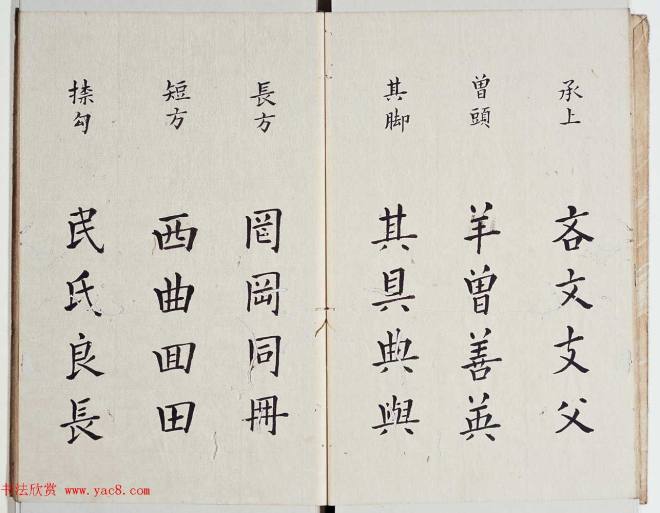 承上
吝文支父
曾頭
羊曾善英
其脚
其具典與
長方
罔岡同冊
短方
西曲囬田
捺勾
民氏良長
书法欣赏 www.yac8.com